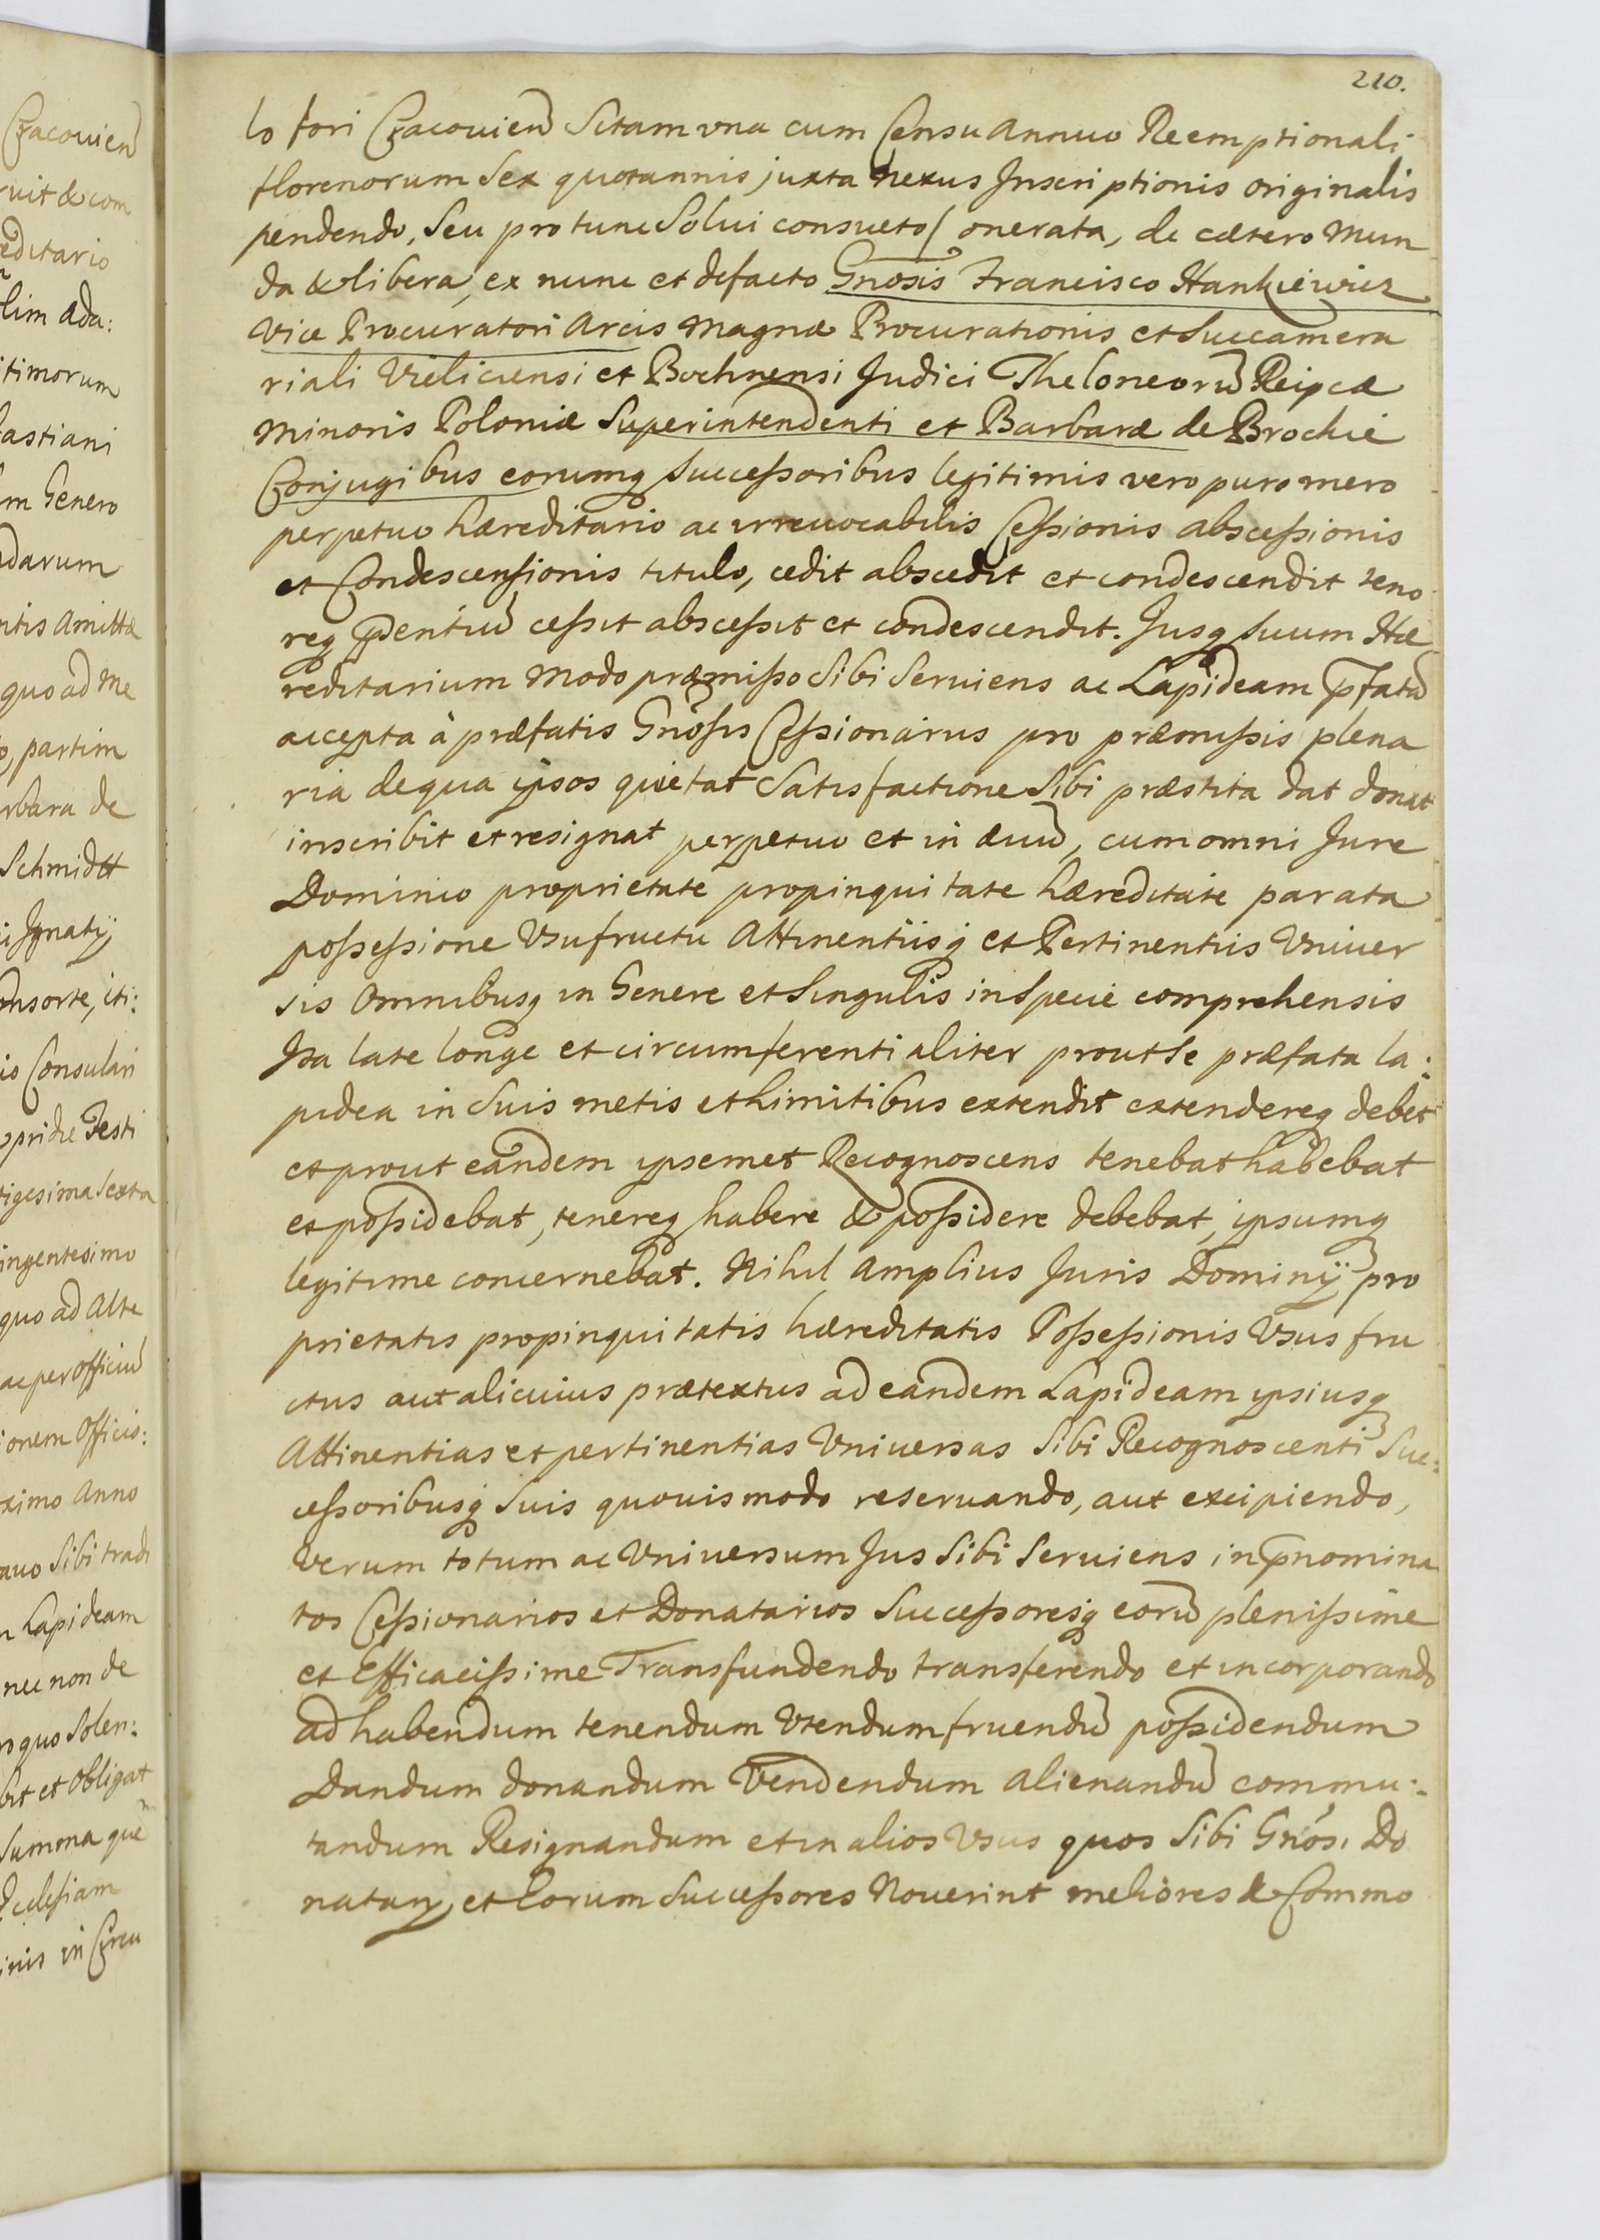 Cracouien̄
ruit & com
editario
lim Ada:
itimorum
astiani
m Genero
darum
ntis Amittæ
quo ad Me
o, partim
rbara de
Schmidtt
i Ignatij
onsorte, iti:
io Consulari
pridie Festi
igesima Sexta
ingentesimo
quo ad Alte
ac per Officiū
ionem Officio:
ximo Anno
auo Sibi tradi
n Lapideam
nec non de
quo Solen:
bit et Obligat
Summa que
Ecclesiam
inis in Circu
210.
lo fori Cracouien̄ Sitam vna cum Censu Annuo Reemptionali
florenorum Sex quotannis juxta Nexus Inscriptionis originalis
pendendo, Seu pro tunc Solui consueto / onerata, de cætero Mun
da & libera, ex nunc et defacto Gnosis Francisco Hankiewicz
Vice Procuratori Arcis Magnæ Procurationis et Succamera
riali Vieliciensi et Bochnensi Judici Theloneorū Reipcæ
Minoris Poloniæ Superintendenti et Barbaræ de Brochie
Conjugibus eorumq Successoribus legitimis vero puro mero
perpetuo hæreditario ac irreuocabilis Cessionis abscessionis
et Condescensionis titulo, cedit abscedit et condescendit teno
req p̄sentiū cessit abscessit et condescendit. Jusq Suum Hæ
reditarium Modo præmisso Sibi Seruiens ac Lapideam p̄fatā
accepta à præfatis Gnosis Cessionarijs pro præmissis plena
ria dequa ipsos quietat Satisfactione Sibi præstita dat donat
inscribit et resignat perpetuo et in æuū, cum omni Jure
Dominio proprietate propinquitate hæreditate parata
possessione Vsufructu Attinentiisq et Pertinentiis Vniuer
sis Omnibusq in Genere et Singulis in Specie comprehensis
Ita late longe et circumferentialiter prout Se præfata la:
pidea in Suis metis et Limitibus extendit extendereq debet
et prout eandem ipsemet Recognoscens tenebat habebat
et possidebat, tenereq habere & possidere debebat, ipsumq
legitime concernebat. Nihil Amplius Juris Dominij pro
prietatis propinquitatis hæreditatis Possessionis Vsus fru
ctus aut alicuius prætextus ad eandem Lapideam ipsiusq
Attinentias et pertinentias Vniuersas Sibi Recognoscenti Suc:
cessoribusq Suis quouismodo reseruando, aut excipiendo,
Verum totum ac Vniuersum Jus Sibi Seruiens in p̄nomina
tos Cessionarios et Donatarios Successoresq eorū plenissime
et Efficacissime Transfundendo transferendo et incorporando
ad habendum tenendum Vtendum fruendū possidendum
Dandum donandum Vendendum Alienandū commu:
tandum Resignandum et in alios Vsus quos Sibi Gnosi Do
natarij et Eorum Successores Nouerint meliores & Commo